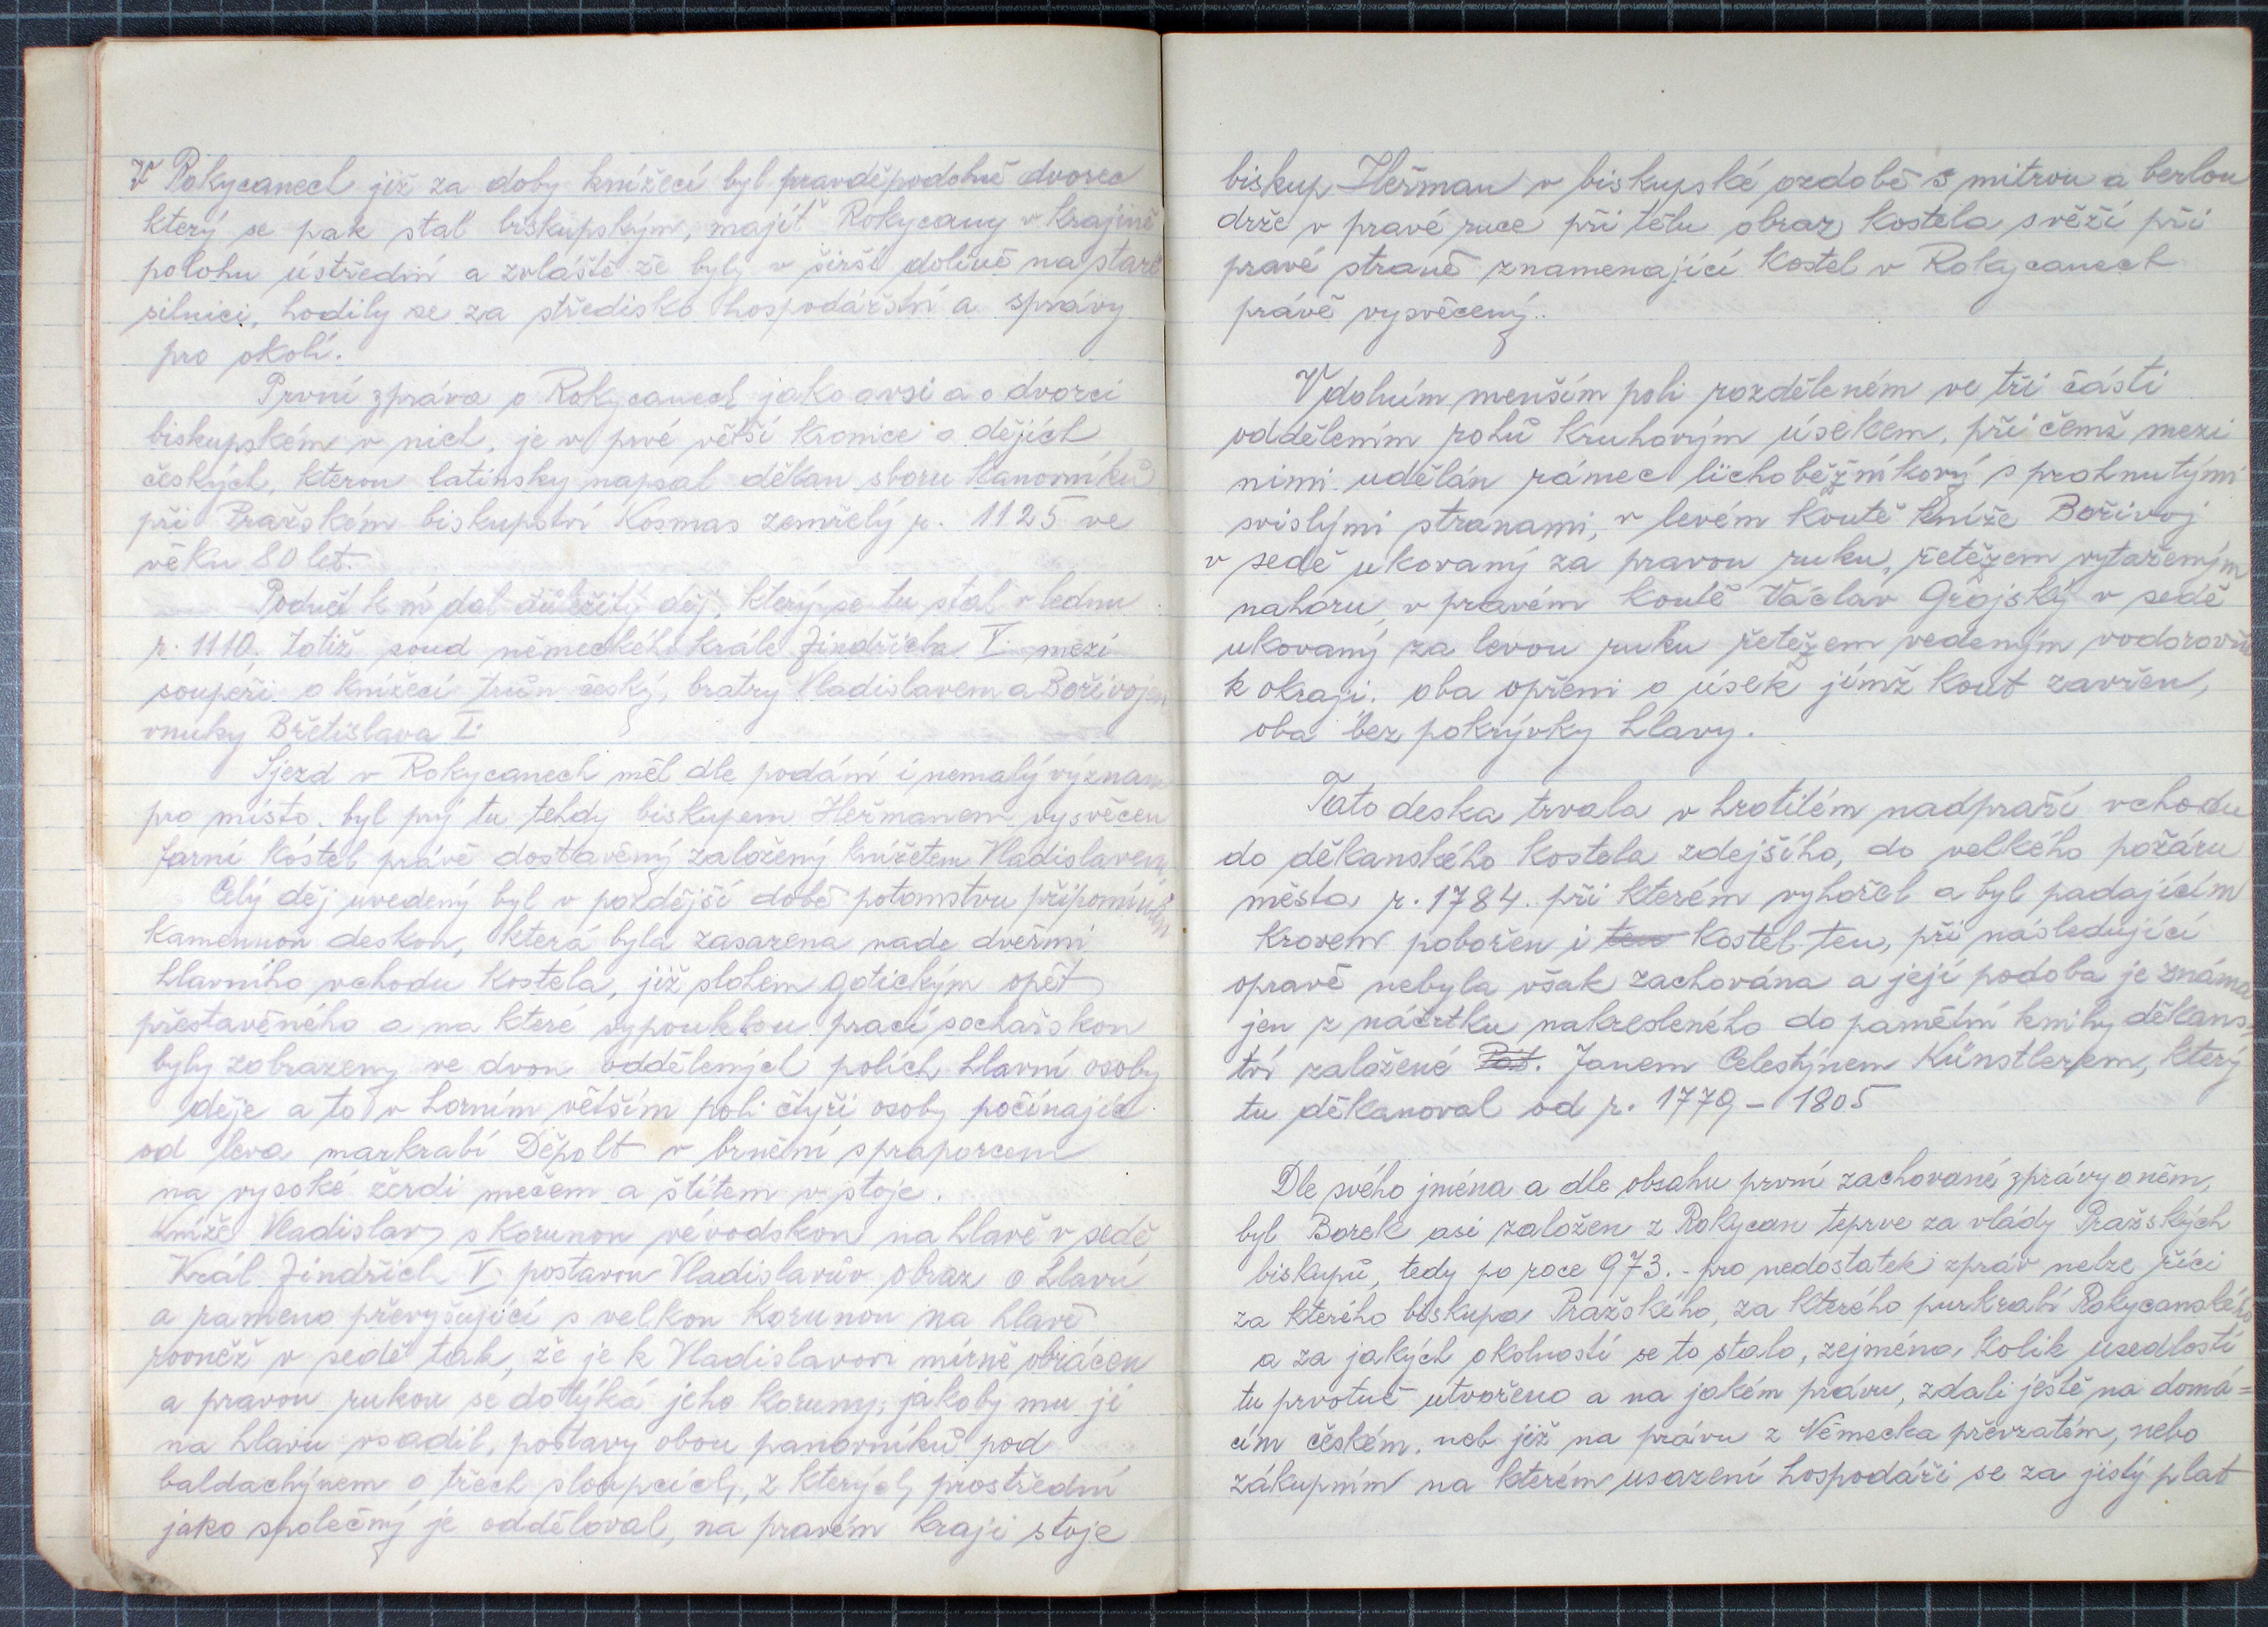 V Rokycanech již za doby knížecí byl pravděpodobně dvorec
který se pak stal biskupským, majíť Rokycany v krajině
polohu ústřední a zvláště že byly v širší dolině na staré
silnici, hodily se za středisko hospodářství a správy
pro okolí.
První zpráva o Rokycanech jako o vsi a o dvorci
biskupském v nich, je v prvé větší kronice o dějích
českých, kterou latinsky napsal děkan sboru kanovníků
při Pražském biskupství Kosmas zemřelý r. 1125 ve
věku 80 let.
Podnět k ní dal důležitý děj, který se tu stal v lednu
r. 1110. totiž soud německého krále Jindřicha V. mezi
soupeři o knížecí trůn český, bratry Vladislavem a Bořivojem
vnuky Břetislava I.
Sjezd v Rokycanech měl dle podání i nemalý význam
pro místo. byl prý tu tehdy biskupem Heřmanem vysvěcen
farní kostel právě dostavěný založený knížetem Vladislavem.
Celý děj uvedený byl v pozdější době potomstvu připomínán
kamennou deskou, která byla zasazena nade dveřmi
hlavního vchodu kostela, již slohem gotickým opět
přestavěného a na které vypouklou prací sochařskou
byly zobrazeny ve dvou oddělených polích hlavní osoby
děje a to v horním větším poli čtyři osoby počínajíc
od leva markrabí Děpolt v brnění s praporcem
na vysoké žerdi mečem a štítem v stoje.
Kníže Vladislav s korunou vévodskou na hlavě v sedě
Král Jindřich V. postavou Vladislavův obraz o hlavu
a rameno převyšující s velkou korunou na hlavě
rovněž v sedě tak, že je k Vladislavovi mírně obrácen
a pravou rukou se dotýká jeho koruny, jakoby mu ji
na hlavu vsadil, postavy obou panovníků pod
baldachýnem o třech sloupcích, z kterých prostřední
jako společný je odděloval, na pravém kraji stoje
biskup Heřman v biskupské ozdobě s mitrou a berlou
drže v pravé ruce při tělu obraz kostela svěží při
pravé straně znamenající kostel v Rokycanech
právě vysvěcený..
V dolním menším poli rozděleném ve tři části
oddělením rohů kruhovým úsekem, při čemž mezi
nimi udělán rámec lichoběžníkový s prohnutými
svislými stranami, v levém koutě kníže Bořivoj
v sedě ukovaný za pravou ruku, řetězem vytaženým
nahoru, v pravém koutě Václav Grojský v sedě
ukovaný za levou ruku řetězem vedeným vodorovně
k okraji. oba opřeni o úsek jímž kout zavřen,
oba bez pokrývky hlavy.
Tato deska trvala v hrotitém nadpraží vchodu
do děkanského kostela zdejšího, do velkého požáru
města r. 1784. při kterém vyhořel a byl padajícím
krovem pobořen i ten kostel ten, při následující
opravě nebyla však zachována a její podoba je známa
jen z náčrtku nakresleného do pamětní knihy děkans=
tví založené Pat. Janem Celestýnem Künstlerem, který
tu děkanoval od r. 1779 - 1805
Dle svého jména a dle obsahu první zachované zprávy o něm,
byl Borek asi založen z Rokycan teprve za vlády Pražských
biskupů, tedy po roce 973. - pro nedostatek zpráv nelze říci
za kterého biskupa Pražského, za kterého purkrabí Rokycanského
a za jakých okolností se to stalo, zejména kolik usedlostí
tu prvotně utvořeno a na jakém právu, zdali ještě na domá=
cím českém. neb již na právu z Německa převzatém, nebo
zákupním na kterém usazení hospodáři se za jistý plat